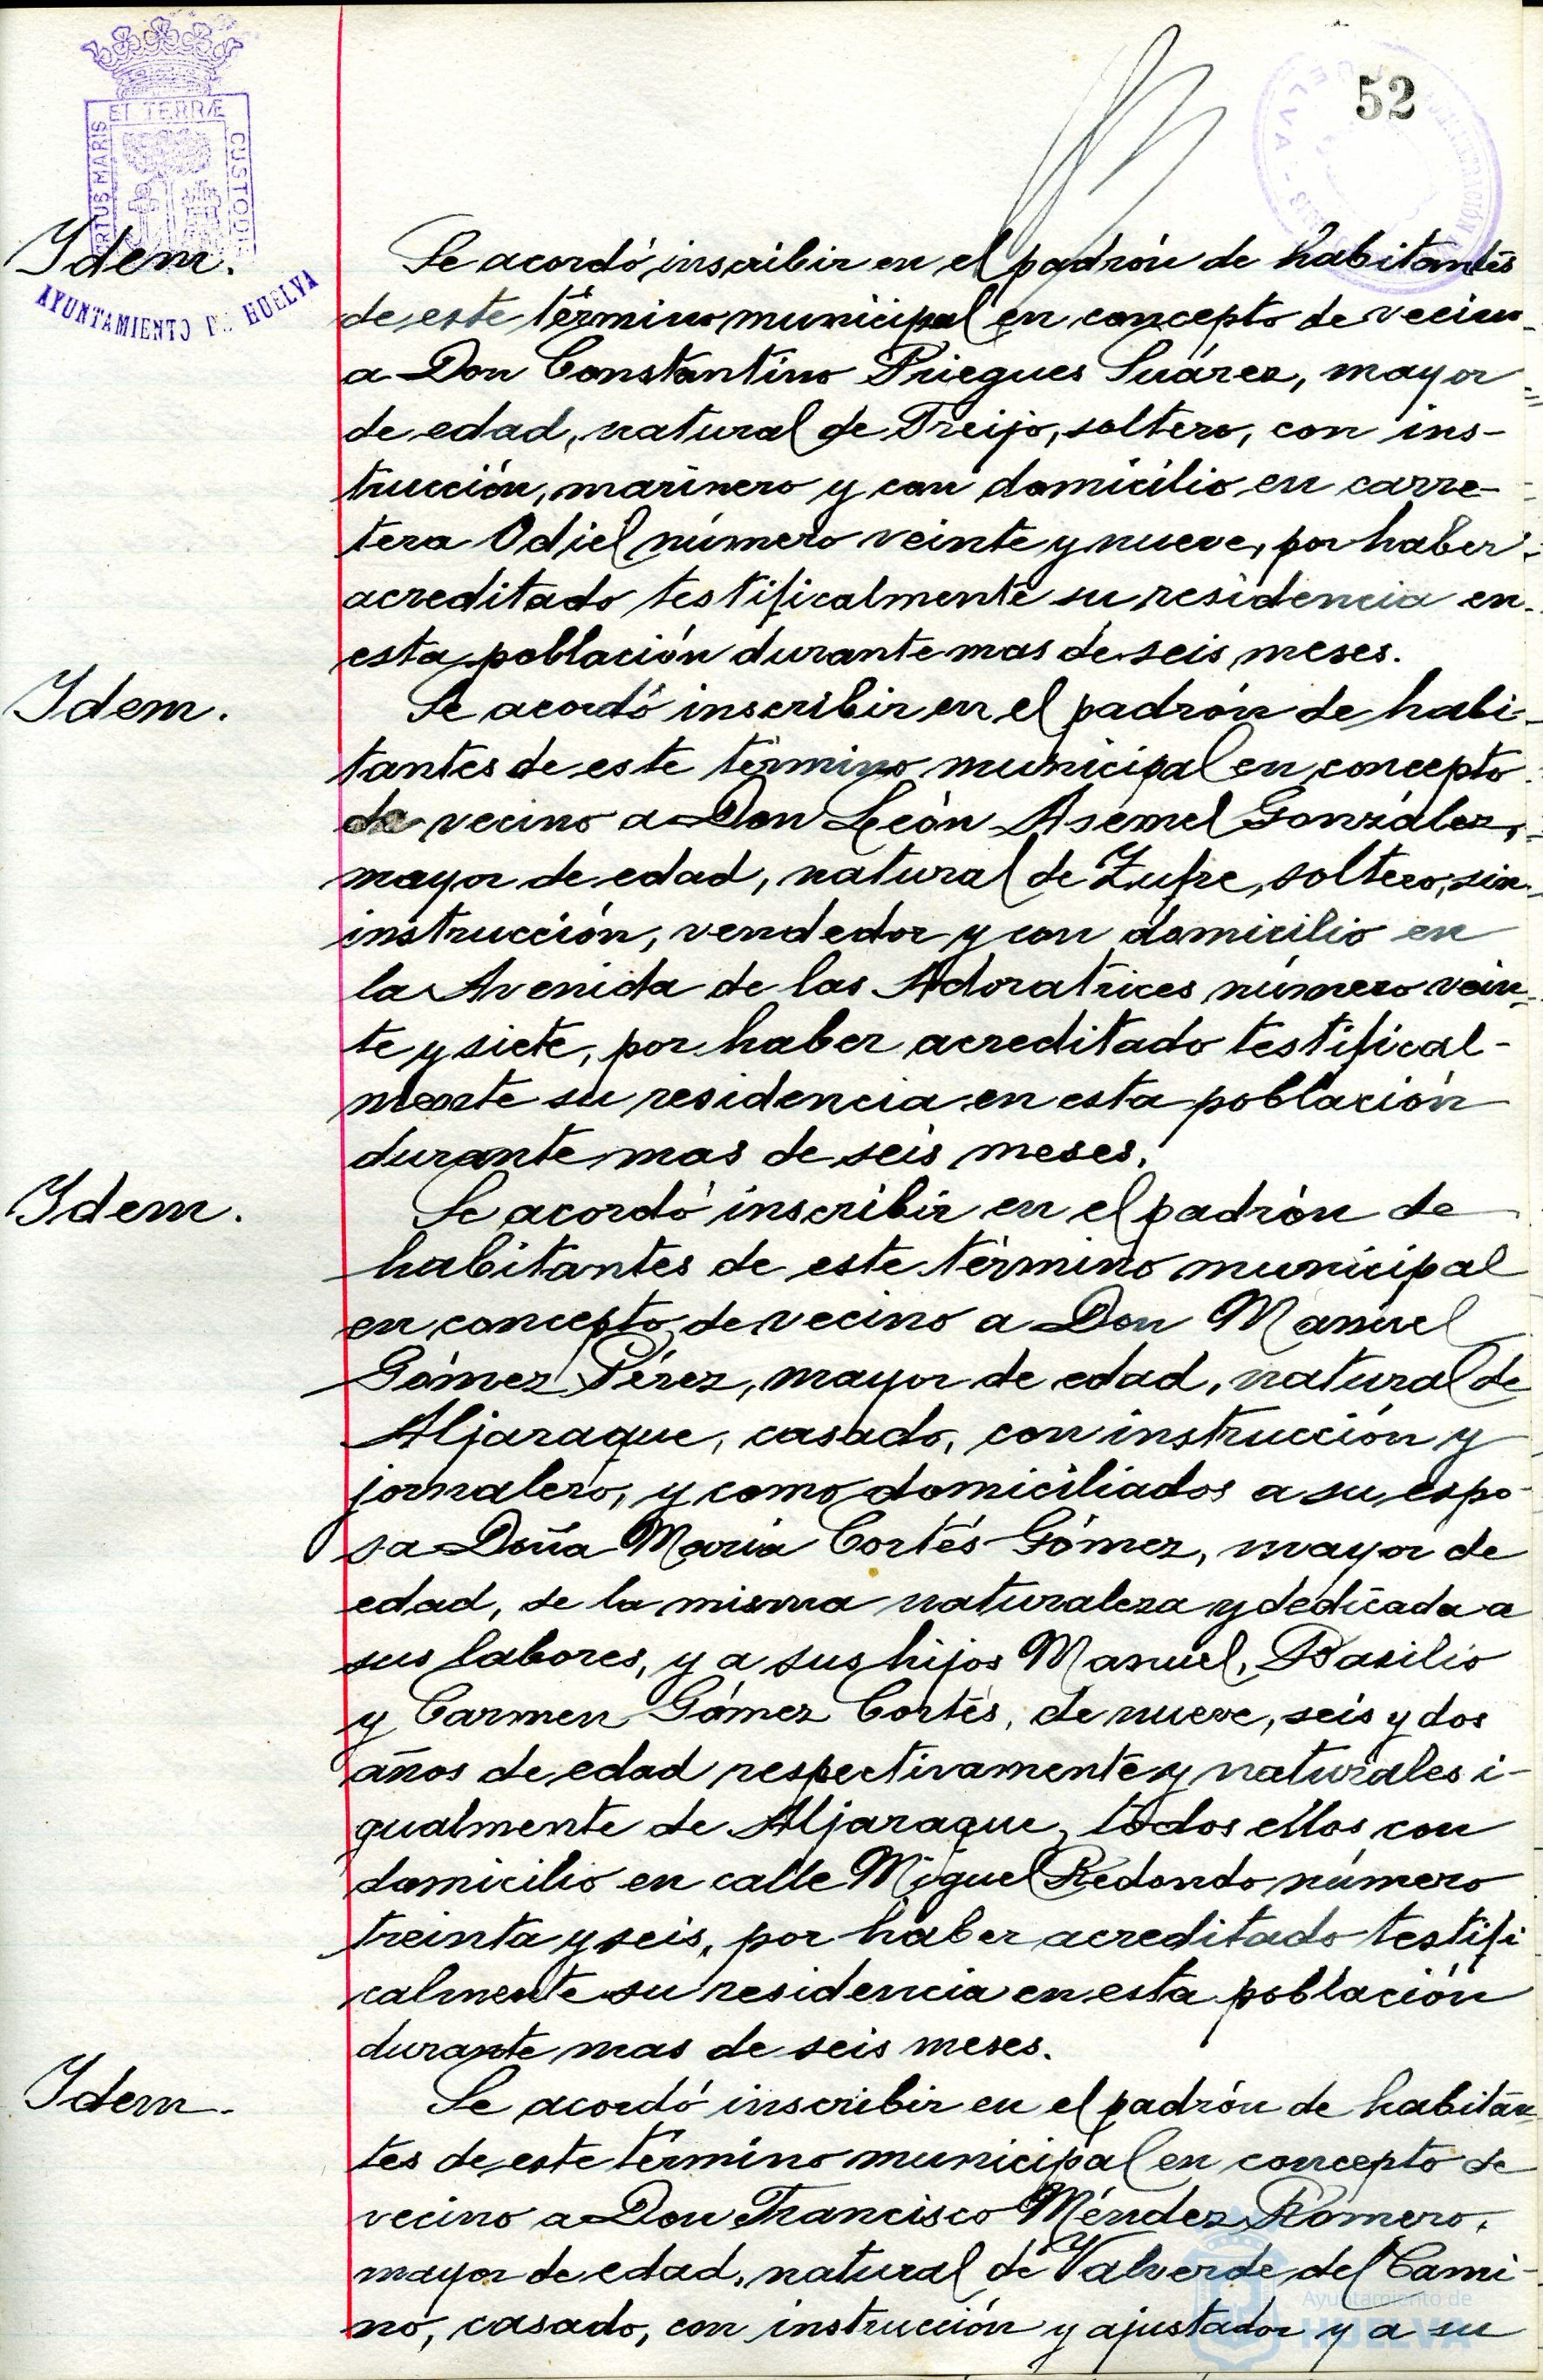 52
ET TERRÆ
PORTUS MARIS
CUSTODIA
AYUNTAMIENTO DE HUELVA
Idem.
Se acordó inscribir en el padrón de habitantes
de este término municipal en concepto de vecino
a Don Constantino Priegues Suárez, mayor
de edad, natural de Treijo, soltero, con ins-
trucción, marinero y con domicilio en carre-
tera Odiel número veinte y nueve, por haber
acreditado testificalmente su residencia en
esta población durante mas de seis meses.
Idem.
Se acordó inscribir en el padrón de habi-
tantes de este término municipal en concepto
de vecino a Don León Asemel González,
mayor de edad, natural de Zufre, soltero, sin
instrucción, vendedor y con domicilio en
la Avenida de las Adoratrices número vein-
te y siete, por haber acreditado testifical-
mente su residencia en esta población
durante mas de seis meses.
Idem.
Se acordó inscribir en el padrón de
habitantes de este término municipal
en concepto de vecino a Don Manuel
Gómez Pérez, mayor de edad, natural de
Aljaraque, casado, con instrucción y
jornalero, y como domiciliados a su espo-
sa Doña María Cortés Gómez, mayor de
edad, de la misma naturaleza y dedicada a
sus labores, y a sus hijos Manuel, Basilio
y Carmen Gómez Cortés, de nueve, seis y dos
años de edad respectivamente y naturales i-
gualmente de Aljaraque, todos ellos con
domicilio en calle Miguel Redondo número
treinta y seis, por haber acreditado testifi
calmente su residencia en esta población
durante mas de seis meses.
Idem.
Se acordó inscribir en el padrón de habitan
tes de este término municipal en concepto de
vecino a Don Francisco Méndez Romero,
mayor de edad, natural de Valverde del Cami-
no, casado, con instrucción y ajustador y a su
Ayuntamiento de
HUELVA